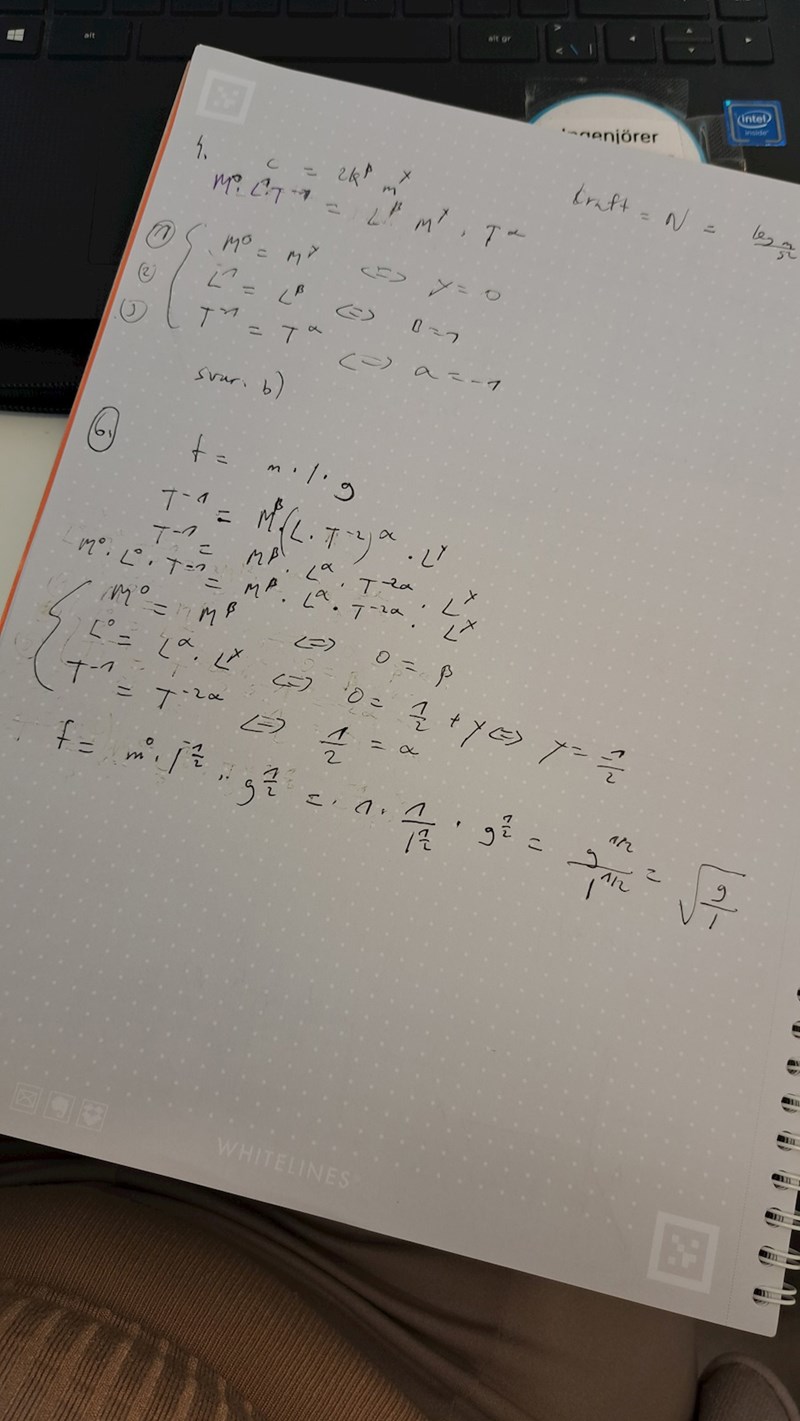 alt
alt gr
Ingenjörer
intel
inside
4.
c = 2k^β m^γ
Kraft = N =
M⁰·L¹·T⁻¹ = L^β M^γ · T^α
① M⁰ = M^γ <=> γ = 0
② L¹ = L^β <=> β = 1
③ T⁻¹ = T^α <=> α = -1
svar. b)
6.
f = m · l · g
T⁻¹ = M^β · (L · T⁻²)^α · L^γ
T⁻¹ = M^β · L^α · T^-2α · L^γ
M⁰ · L⁰ · T⁻¹ = M^β · L^α · T^-2α · L^γ
M⁰ = M^β <=> 0 = β
L⁰ = L^α · L^γ <=> 0 = 1/2 + γ <=> γ = -1/2
T⁻¹ = T^-2α <=> 1/2 = α
f = m⁰ · l^-1/2 · g^1/2 = 1 · 1/l^1/2 · g^1/2 = g^1/2/l^1/2 = √(g/l)
WHITELINES